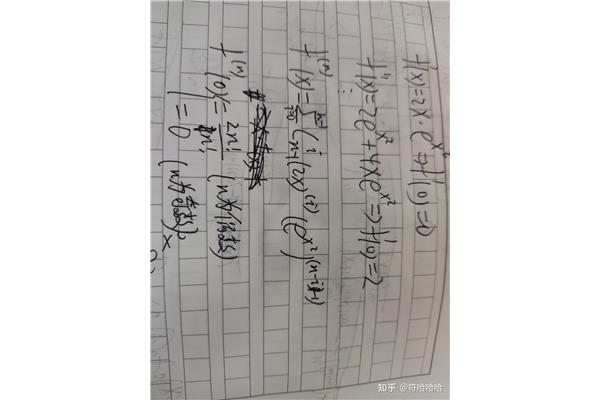 f'(x)=2x·e^{x²}⇒f'(0)=0
f''(x)=2e^{x²}+4xe^{x²}⇒f''(0)=2
⋮
f^{(n)}(x)=∑_{i=0}^{n-1}C_{n-1}^{i}(2x)^{(i)}(e^{x²})^{(n-i-1)}
f^{(n)}(0)=2n!/n! (n为偶数)
=0 (n为奇数)
知乎 @符哈哈哈